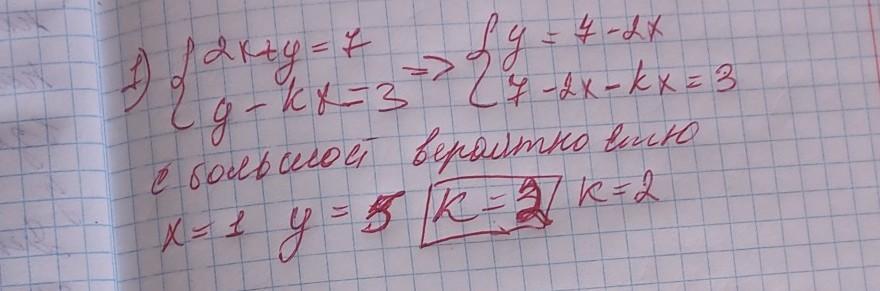 1) { 2x+y=7 => { y = 7-2x
{ y - kx=3 { 7-2x-kx=3
с большой вероятностью
x=1 y=5 k=2 k=2